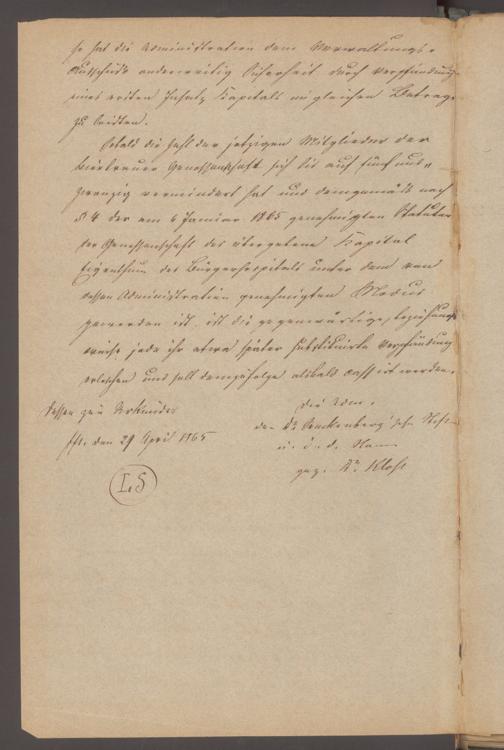 so hat die Administration dem Verwaltungs-
Ausschuß anderweitig Sicherheit durch Verpfändung
eines ersten Insatz Kapitals im gleichen Betrage
zu leisten.
Sobald die Zahl der jetzigen Mitglieder der
Bierbrauer Genossenschaft sich bis auf fünf und-
zwanzig vermindert hat und demgemäß nach
§ 4 der am 6 Januar 1865 genehmigten Statuten
der Genossenschaft das übergebene Kapital
Eigenthum des Bürgerhospitals unter dem von
dessen Administration genehmigten Modus
geworden ist, ist die gegenwärtige, beziehungs-
weise jede ihr etwa später substituirte Verpfändung
erloschen und soll demzufolge alsbald cassirt werden.
Dessen zur Urkunde
Fft. den 29 April 1865
Die Adm.
der Dr. Senckenberg'schen Stift.
u. d. d. Nam
gez. Dr. Kloß
L. S